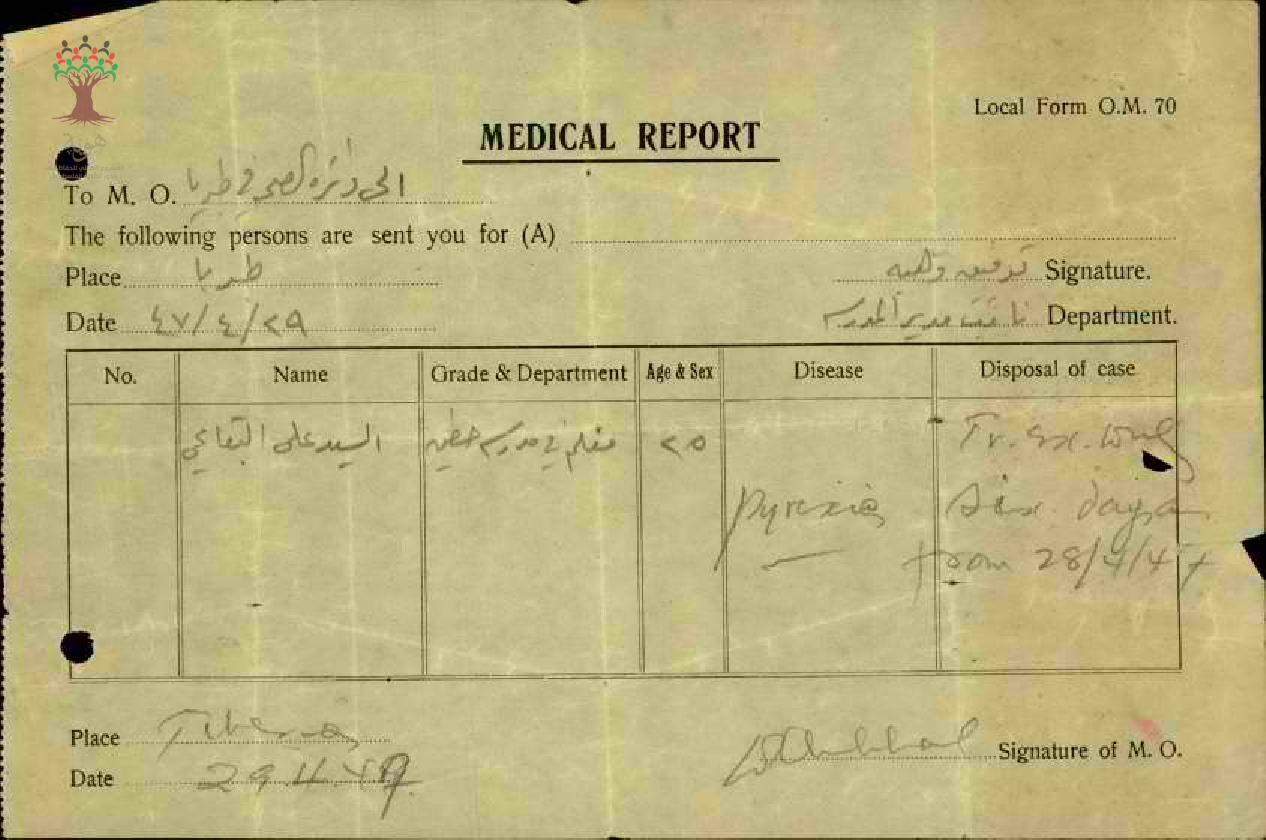 Local Form O.M. 70
MEDICAL REPORT
To M. O. الى دائرة الصحة في طبريا
The following persons are sent you for (A)
Place طبريا
توفيق وهبه Signature.
Date ٤٧/٤/٢٩
نائب مدير المدرسة Department.
No. Name Grade & Department Age & Sex Disease Disposal of case
السيد علي البقاعي معلم في مدرسة حطين ٢٥ Tr. Ex.
Pyrexia Six days
from 28/4/47
Place Tiberias
Signature of M. O.
Date 29.4.47